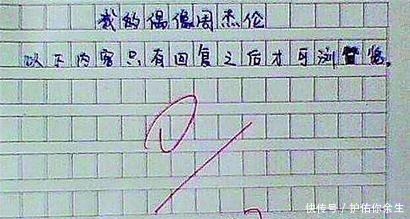 我的偶像周杰伦
以下内容只有回复之后才可浏览。
0
快传号/护佑你余生